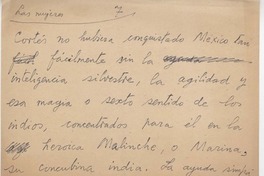 Las mujeres
Cortés no hubiera conquistado México tan
fácilmente sin la
inteligencia silvestre, la agilidad y
esa magia o sexto sentido de los
indios, concentrados para él en la
heroica Malinche, o Marina,
su concubina india. La ayuda